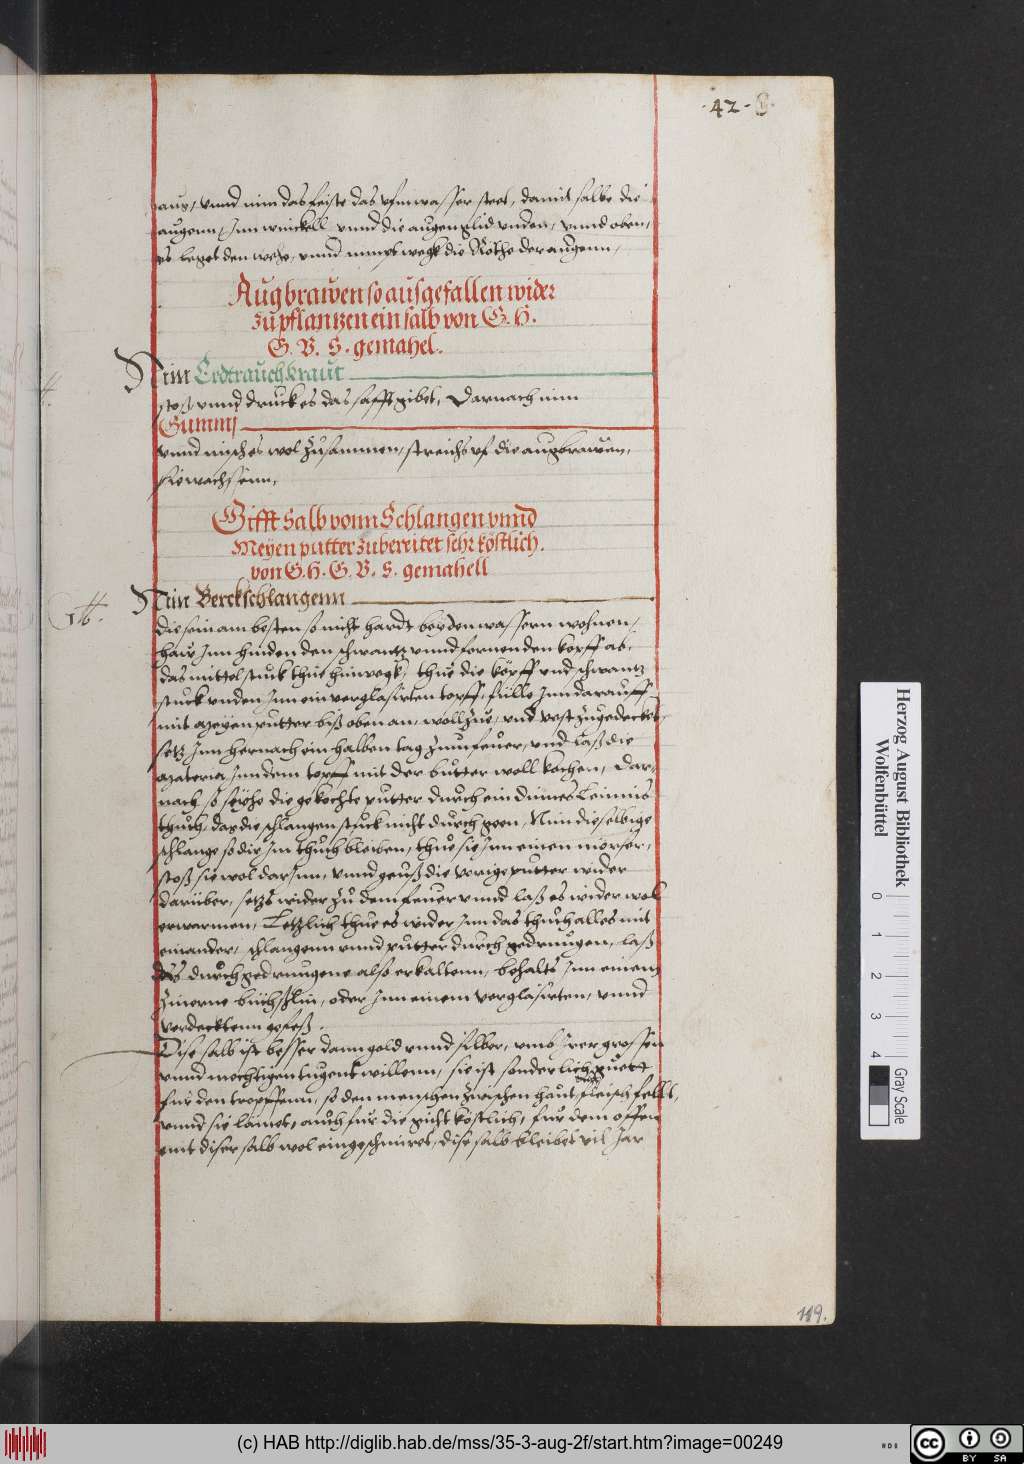 ·42·
aus, vnnd nim das feiste das vfm wasser steet, damit salbe die
augenn, Jnn winckell vnnd die augenglid vnden, vnnd oben,
es leget den wehe, vnnd nimpt wegk die Röthe der augenn,
Augbrawen so ausgefallen wider
zu pflantzen ein salb von G. H.
G. V. S. gemahel.
Nim Erdtrauch kraut
stoß vnnd druck es das safft gibet, Darnach nim
Gummj
vnnd misch es wol zusammen, streichs vf die augbrawen,
sie wachssenn,
Gifft Salb vonn Schlangen vnnd
Meyen putter zubereitet sehr köstlich.
von G. H. G. V. S. gemahell
Nim Berckschlangenn
die sein am besten so nicht hardt bey den wassern wohnen,
haw Jnn hinden den schwantz vnnd fornen den kopff ab,
das mittel stuck thue hinwegk, thue die köpff vnd schwantz
stuck vnden Jnn ein verglasirten topff, fülle Jnn darauff
mit Meyen putter biß oben an, woll zue, vnd vest zugedecket,
setz Jnn hernach ein halben tag zum feuer, vnd laß die
Materia Jnn dem topff mit der butter woll kochen, Dar-
nach so seyhe die gekochte putter durch ein dünnes Leinnis
thuch, das die schlangen stuck nicht durch geen, Nim dieselbige
schlange so dir Jm thuch bleiben, thue sie Jnn einen mörser,
stoß sie wol darJnn, vnnd geuß die vorige putter wider
darüber, setzs wider zu dem feuer vnnd laß es wider wol
erwarmen, Letzlich thue es wider Jnn das thuch alles mit
einander, schlangenn vnnd putter durch gedrungen, laß
das durchgedrungene also erkaltenn, behalts Jnn einem
zinerne büchsslin, oder Jnn einem verglasirten, vnnd
verdecktenn gefeß.
Dise salb ist besser dann gold vnnd silber, vmb Jrer grossen
vnnd mechtigen tugent willenn, sie ist sonderlich guett
für den tropffenn, so den menschen zwischen haut vnnd fleisch fellt,
vnnd sie lämet, auch für die gicht köstlich, für dem offen
mit diser salb wol eingeschmirt, dise salb bleibet vil Jar
119.
Herzog August Bibliothek
Wolfenbüttel
0 1 2 3 4
Gray Scale
(c) HAB http://diglib.hab.de/mss/35-3-aug-2f/start.htm?image=00249
cc BY SA